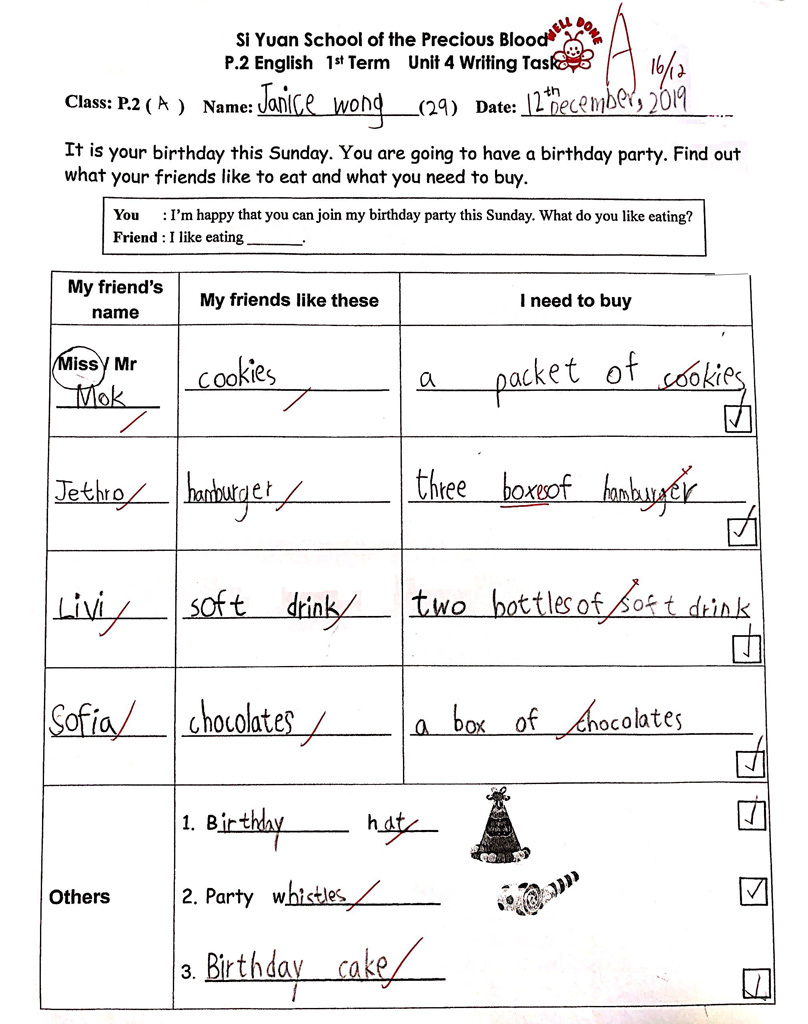 Si Yuan School of the Precious Blood
WELL DONE
A
P.2 English 1st Term Unit 4 Writing Task
16/12
Class: P.2 ( A ) Name: Janice wong (29) Date: 12th December, 2019
It is your birthday this Sunday. You are going to have a birthday party. Find out
what your friends like to eat and what you need to buy.
You : I'm happy that you can join my birthday party this Sunday. What do you like eating?
Friend : I like eating _______.
My friend's name
My friends like these
I need to buy
Miss / Mr
Mok
cookies
a packet of cookies
Jethro
hamburger
three boxes of hamburger
Livi
soft drink
two bottles of soft drink
Sofia
chocolates
a box of chocolates
Others
1. Birthday hat
2. Party whistles
3. Birthday cake